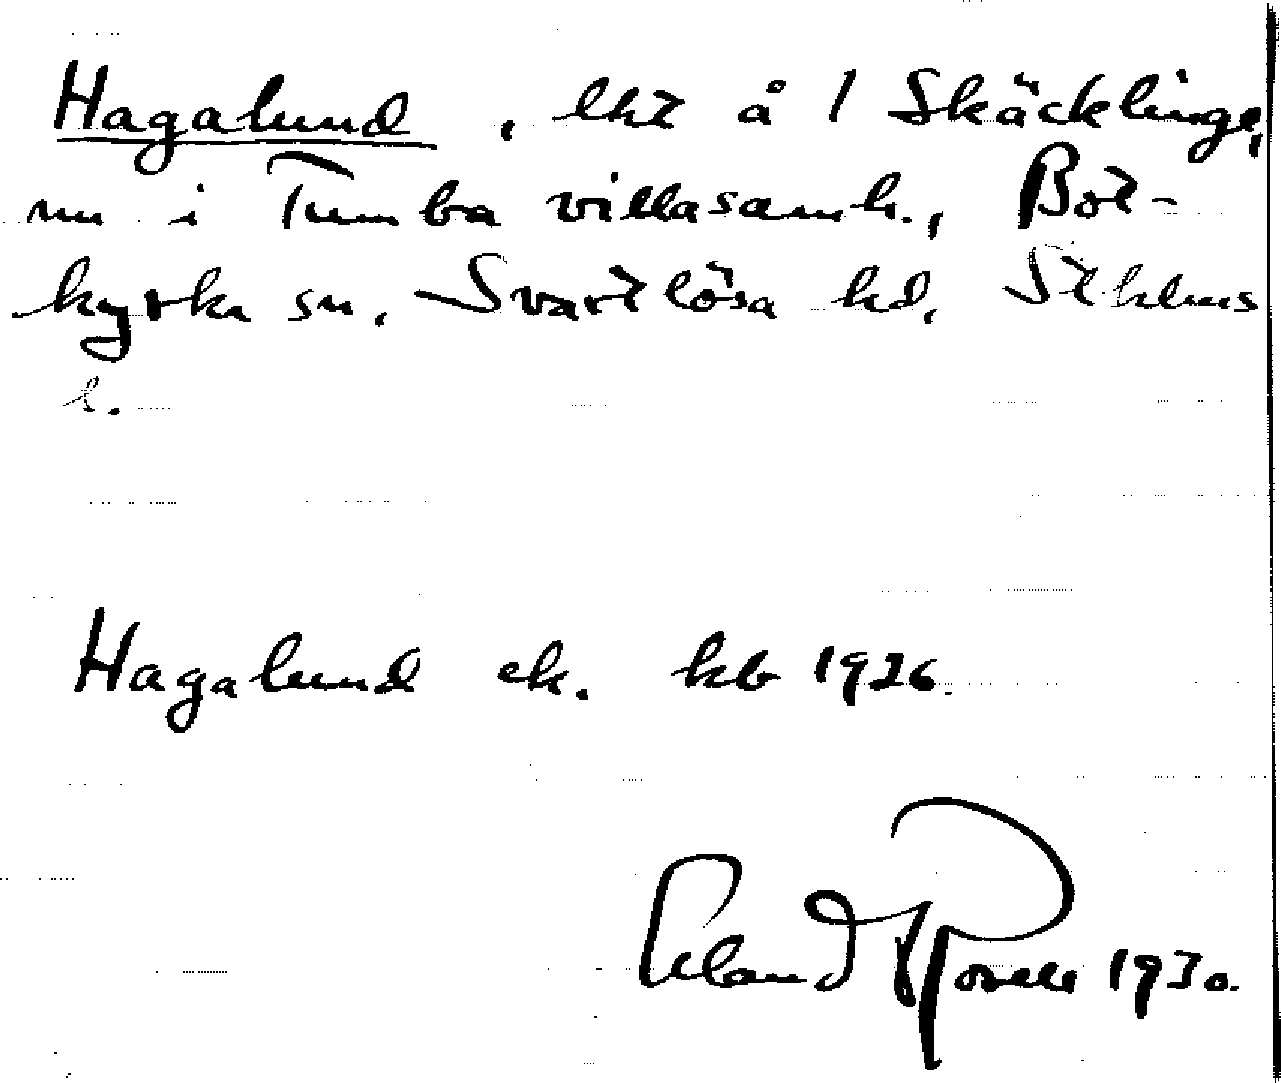 Hagalund, lht å 1 Skäcklinge,
nu i Tumba villasamh., Bot-
kyrka sn. Svartlösa hd. Sthlms
l.
Hagalund ek. kb 1926.
1930.